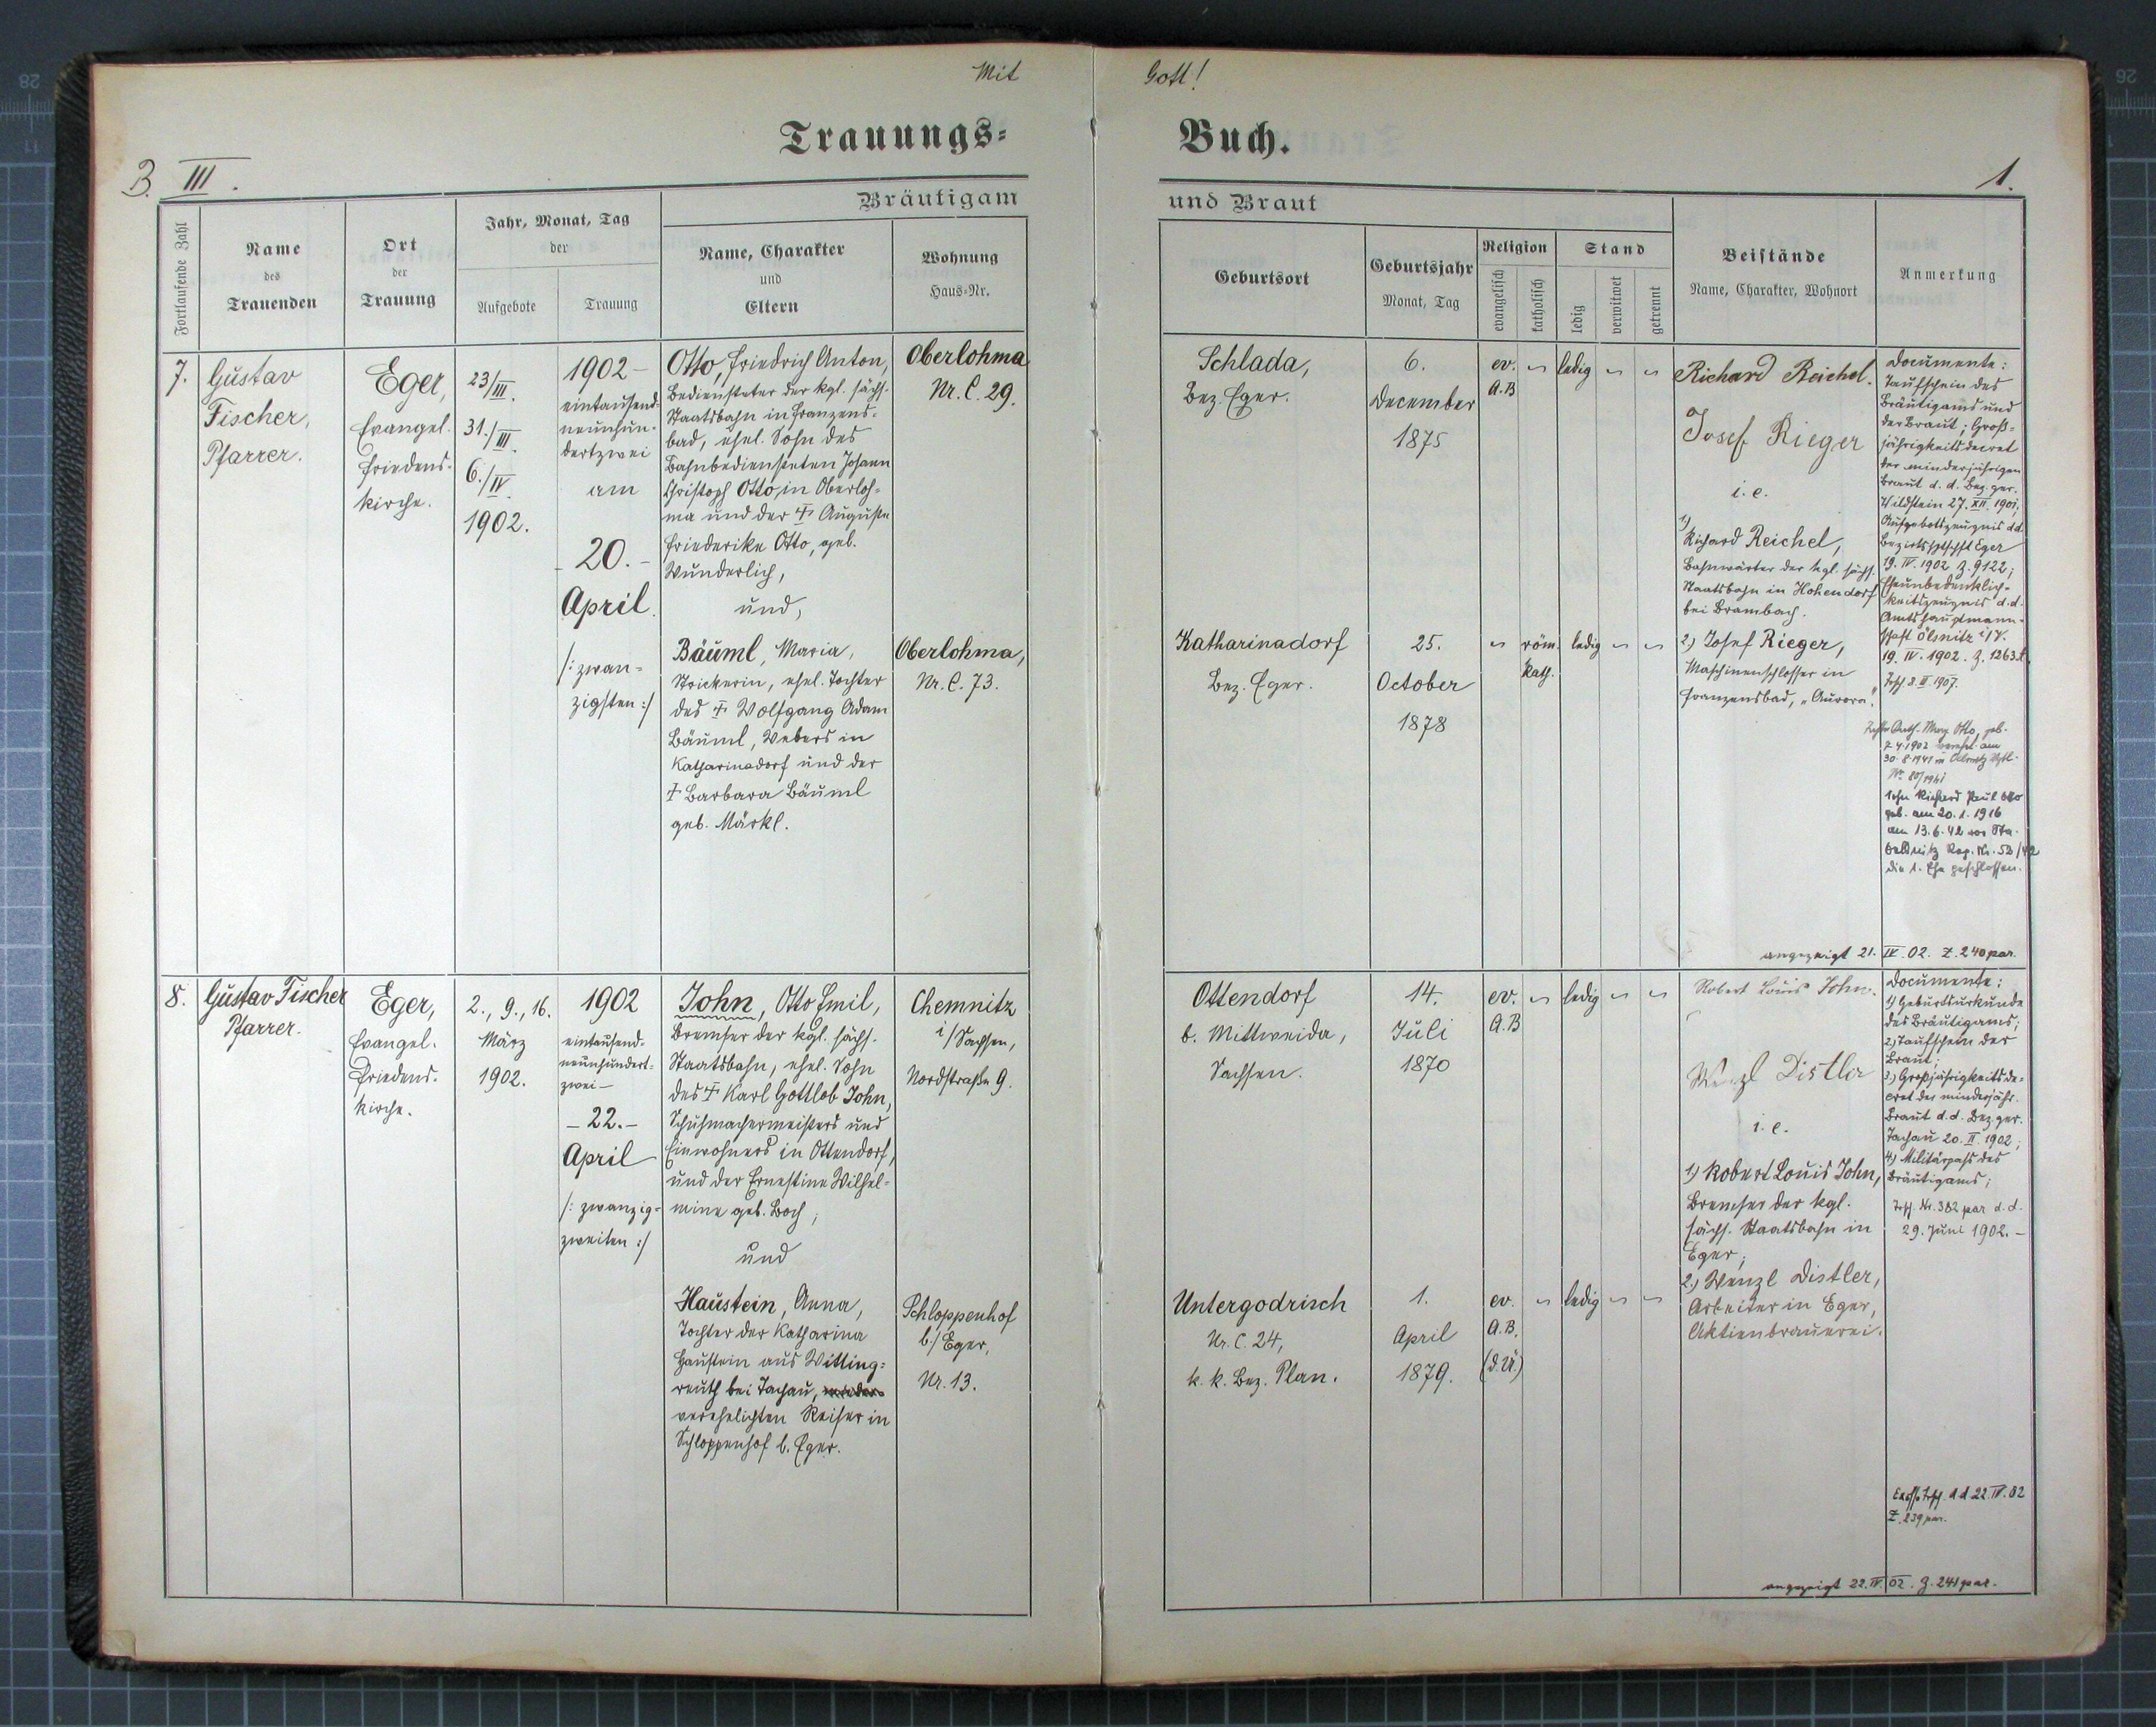 Mit Gott!
Trauungs= Buch.
B. III. 1.
Bräutigam und Braut
Fortlaufende Zahl
Name
des
Trauenden
Ort
der
Trauung
Jahr, Monat, Tag
der
Aufgebote
Trauung
Name, Charakter
und
Eltern
Wohnung
Haus=Nr.
Geburtsort
Geburtsjahr
Monat, Tag
Religion
evangelisch
katholisch
Stand
ledig
verwitwet
getrennt
Beistände
Name, Charakter, Wohnort
Anmerkung
7.
Gustav
Fischer,
Pfarrer.
Eger,
Evangel.
Friedens-
kirche.
23/III.
31./III.
6./IV.
1902.
1902–
eintausend-
neunhun-
dertzwei
am
– 20. –
April
/: zwan=
zigsten :/
Otto, Friedrich Anton,
Bediensteter der kgl. sächs.
Staatsbahn in Franzens-
bad, ehel. Sohn des
Bahnbediensteten Johann
Christoph Otto, in Oberloh-
ma und der † Auguste
Friederike Otto, geb.
Wunderlich,
und,
Bäuml, Maria,
Strickerin, ehel. Tochter
des † Wolfgang Adam
Bäuml, Webers in
Katharinadorf und der
† Barbara Bäuml
geb. Märkl.
Oberlohma
Nr. C. 29.
Oberlohma,
Nr. C. 73.
Schlada,
Bez. Eger.
6.
December
1875
ev.
A.B
ledig
Katharinadorf
Bez. Eger.
25.
October
1878
röm.
kath.
ledig
Richard Reichel.
Josef Rieger
i. e.
1)
Richard Reichel,
Bahnwärter der kgl. sächs.
Staatsbahn in Hohendorf
bei Brambach.
2.) Josef Rieger,
Maschinenschlosser in
Franzensbad, „Aurora".
Documente:
Taufschein des
Bräutigams und
der Braut; Groß-
jährigkeitsdecret
der minderjährigen
Braut d. d. Bez. ger.
Wildstein 27. XII. 1901,
Aufgebotszeugnis d.d.
Bezirkshptschft Eger
19. IV. 1902 Z. 9122;
Eheunbedenklich-
keitszeugnis d.d.
Amtshauptmann-
schaft Ölsnitz i/V.
19. IV. 1902. Z. 1263
Otto, geb.
1902 am
30. 8. 1941 in
Nr. 80/1941
Sohn Richard Paul Otto
geb. am 20. 1. 1916
am 13. 6. 42 vor Sta.
die 1. Ehe geschlossen.
angezeigt 21. IV. 02. Z. 240 par.
8.
Gustav Fischer
Pfarrer.
Eger,
Evangel.
Friedens-
kirche.
2., 9., 16.
März
1902.
1902
eintausend-
neunhundert-
zwei –
– 22. –
April
/: zwanzig-
zweiten :/
John, Otto Emil,
Bremser der kgl. sächs.
Staatsbahn, ehel. Sohn
des † Karl Gottlob John,
Schuhmachermeisters und
Einwohners in Ottendorf,
und der Ernestine Wilhel-
mine geb. Boch;
und
Haustein, Anna,
Tochter der Katharina
Haustein aus Witting-
reuth bei Tachau,
verehelichten Reiser in
Schloppenhof b. Eger.
Chemnitz
i/Sachsen,
Nordstraße 9.
Schloppenhof
b./Eger,
Nr. 13.
Ottendorf
b. Mittweida,
Sachsen.
14.
Juli
1870
ev.
A.B
ledig
Untergodrisch
Nr. C. 24,
k. k. Bez. Plan.
1.
April
1879.
ev.
A.B.
(d. Ü.)
ledig
Robert Louis John.
Wenzl Distler
i. e.
1.) Robert Louis John,
Bremser der kgl.
sächs. Staatsbahn in
Eger;
2.) Wenzl Distler,
Arbeiter in Eger,
Aktienbrauerei.
Documente:
1) Geburtsurkunde
des Bräutigams;
2.) Taufschein der
Braut;
3.) Großjährigkeitsde-
cret der minderjähr.
Braut d.d. Bez. ger.
Tachau 20. II. 1902;
4.) Militärpass des
Bräutigams;
Nr. 382 par d. d.
29. Juni 1902. –
d d 22. IV. 02
Z. 239 par.
angezeigt 22. IV. 02. Z. 241 par.